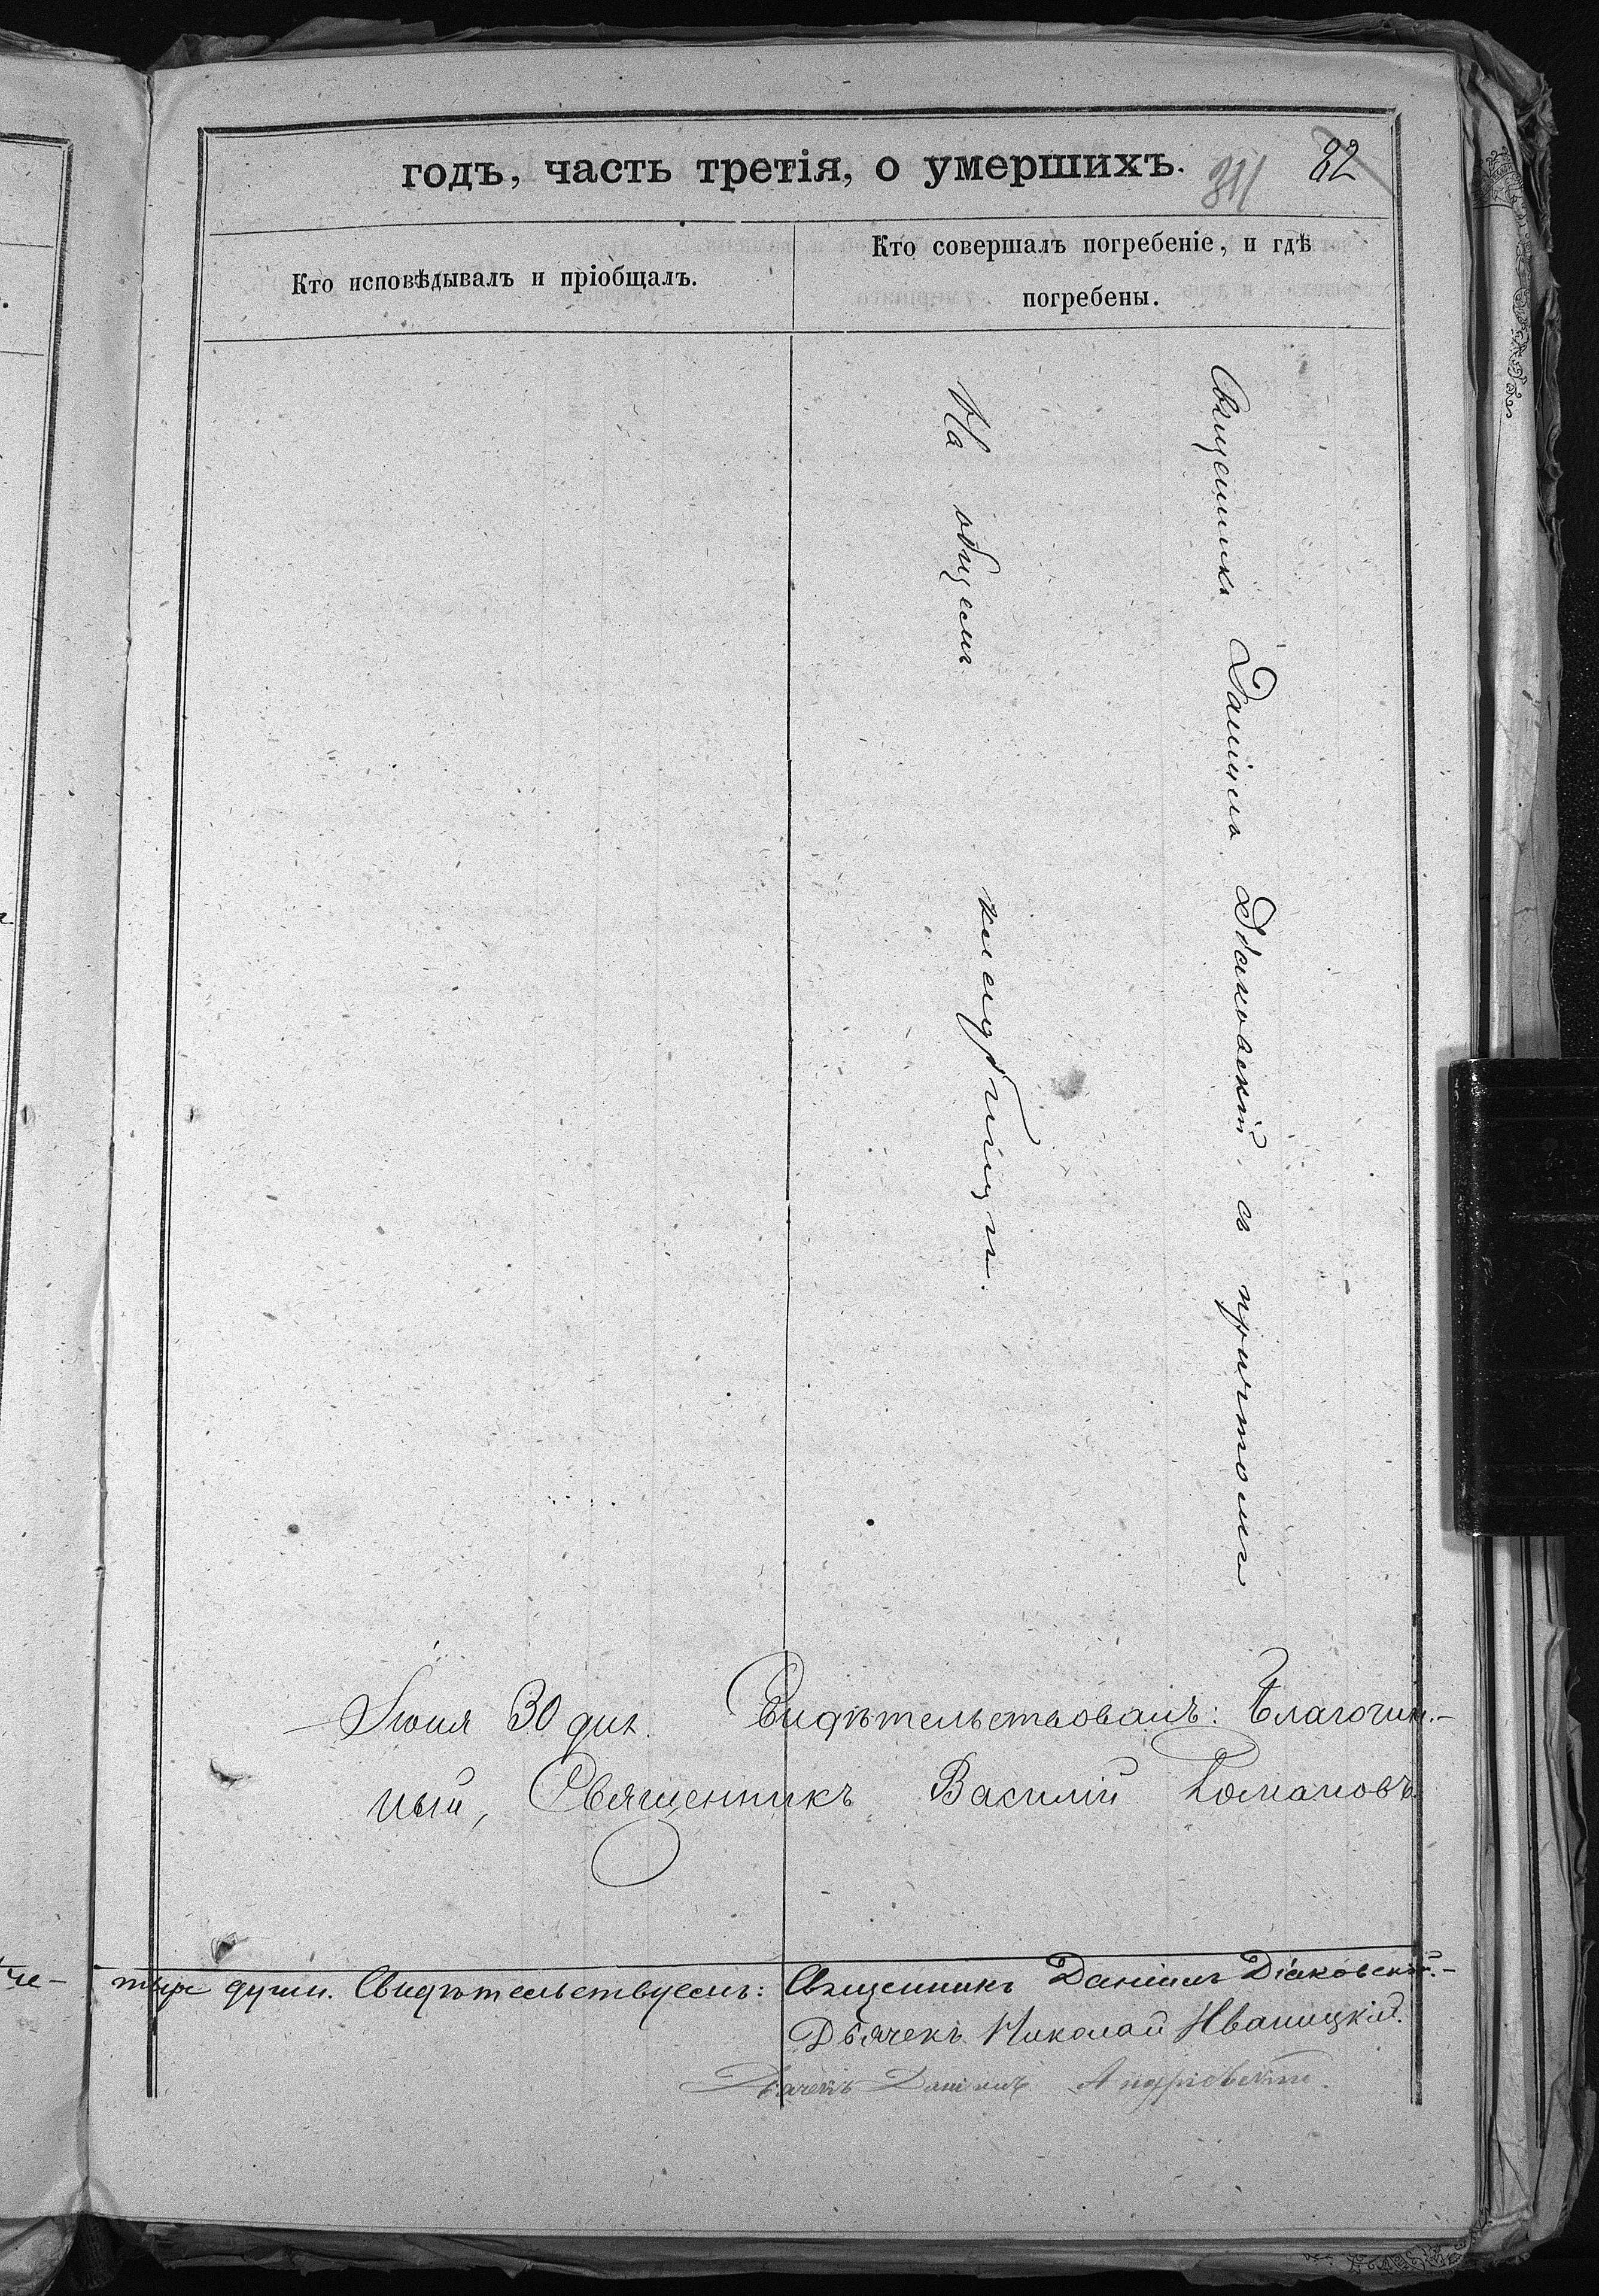 годъ, часть третія, о умершихъ.
311 82
Кто исповѣдывалъ и пріобщалъ.
Кто совершалъ погребеніе, и гдѣ
погребены.
Священникъ Даніилъ Діаковскій съ причтомъ
На общемъ кладбищи.
Іюня 30 дня. Свидѣтельствовалъ: Благочин-
ный, Священникъ Василій Романовъ.
че-
тыре души. Свидѣтельствуемъ: Священникъ Даніилъ Діаковскій.
Дьячекъ Николай Иваницкій.
Дьячекъ Даніилъ Андріевскій.